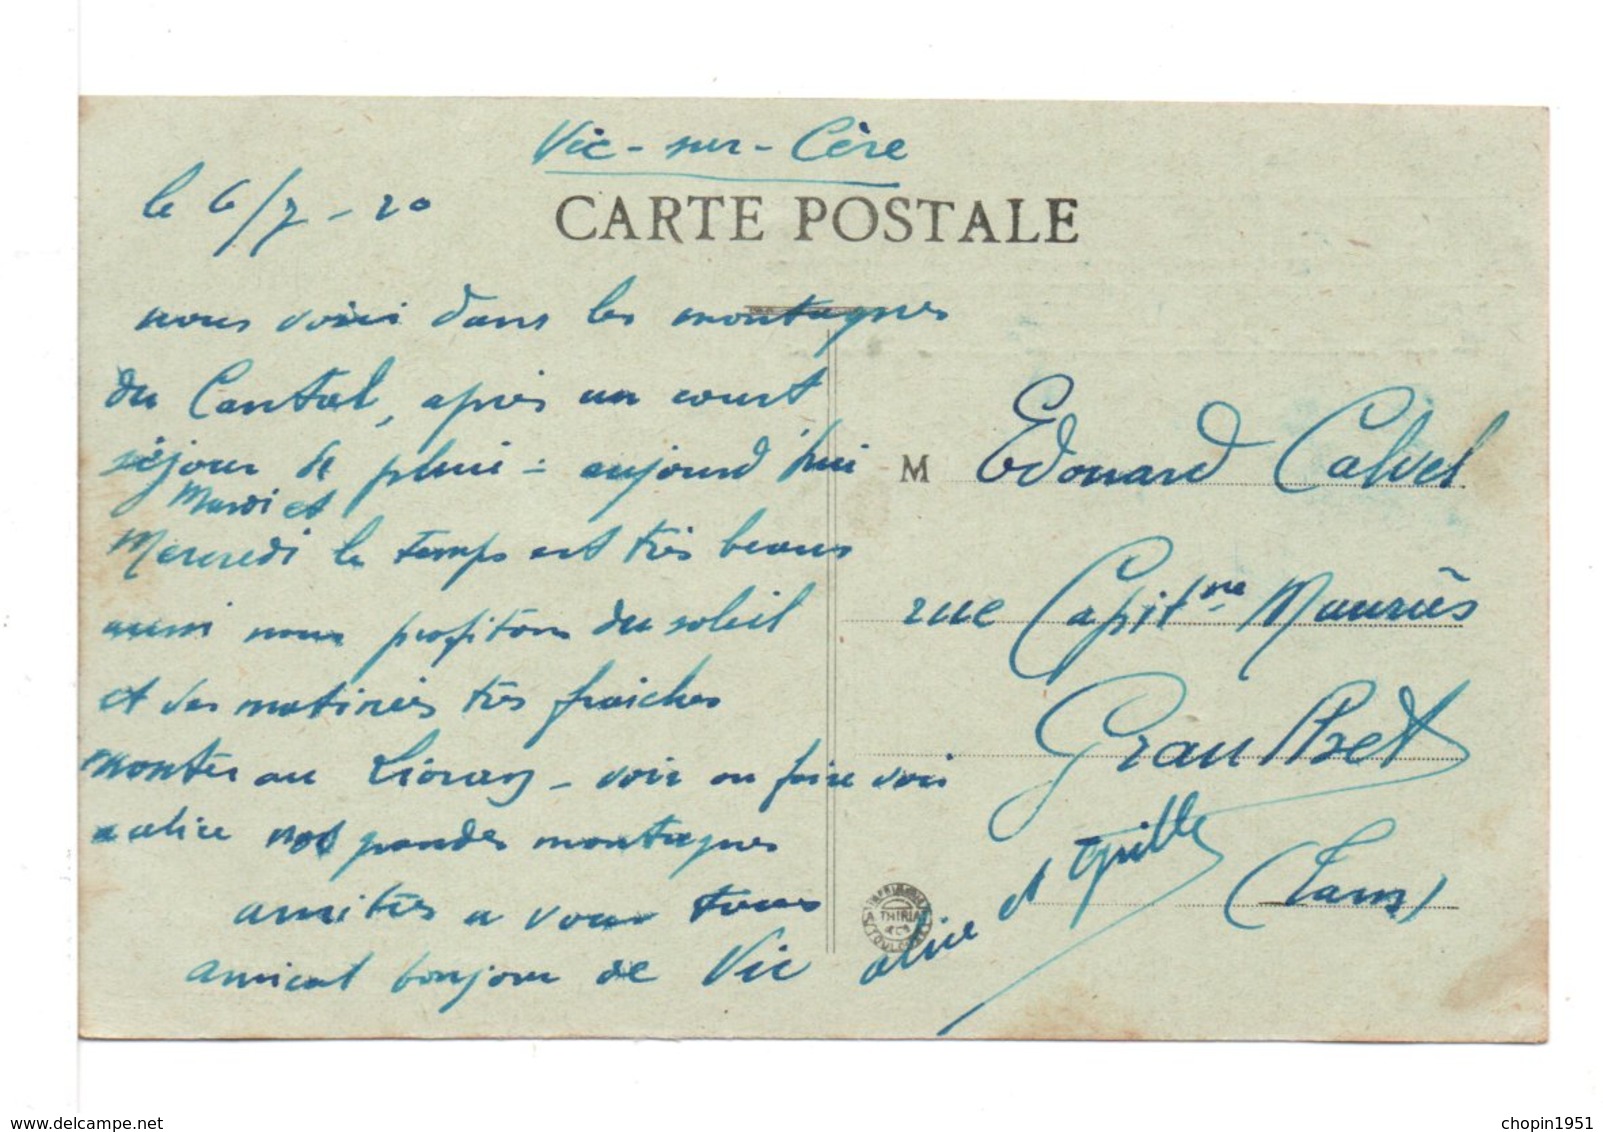 Vic-sur-Cère
le 6/7-20
CARTE POSTALE
nous voici dans les montagnes
du Cantal, après un court
séjour de pluie = aujourd'hui
Mardi et
Mercredi le temps est très beau
aussi nous profitons du soleil
et des matinées très fraiches
monter au Lioran - voir ou faire voir
a alice nos grandes montagnes
amitiés a vous tous
amical bonjour de Vic
alice et
M Edouard Calvel
rue Capit ne Mauriès
Graulhet
(Tarn)
THIRIA
delcampe.net
chopin1951